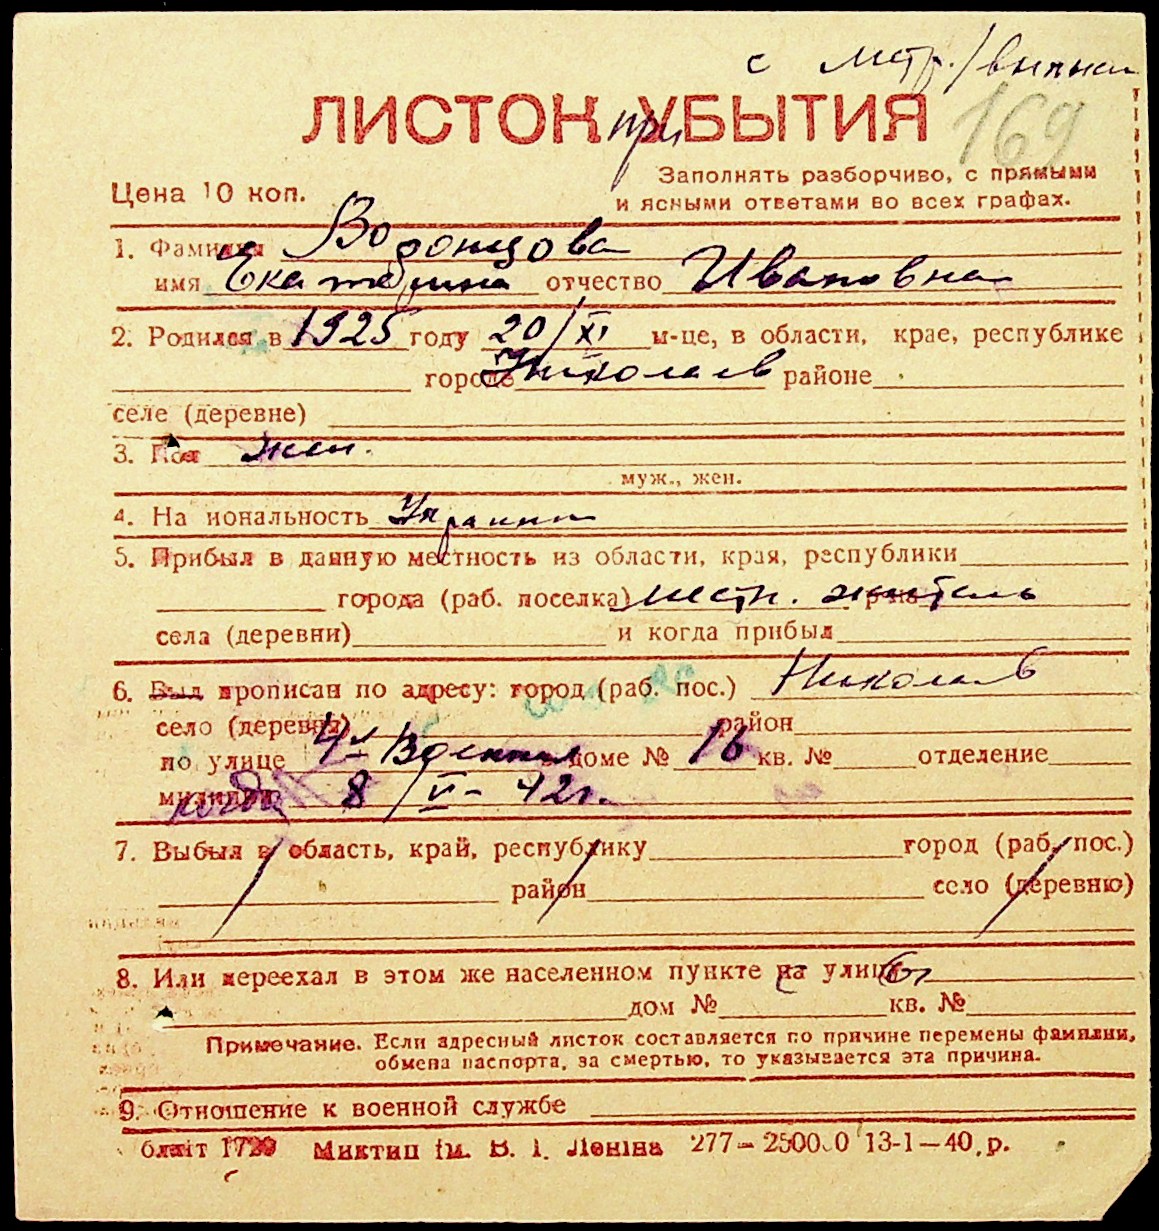 с метр./выписи
ЛИСТОК при УБЫТИЯ
169
Цена 10 коп.
Заполнять разборчиво, с прямыми
и ясными ответами во всех графах.
1. Фамилия Водонцова
имя Екатерина отчество Ивановна
2. Родился в 1925 году 20/XI м-це, в области, крае, республике
городе Николаев районе
селе (деревне)
3. Пол жен.
муж., жен.
4. На иональность Украинк
5. Прибыл в данную местность из области, края, республики
города (раб. поселка) местн. житель
села (деревни) и когда прибыл
6. Был прописан по адресу: город (раб. пос.) Николаев
село (деревня) район
по улице 4я Военная в доме № 16 кв. № отделение
милиции когда 8/VI-42г.
7. Выбыл в область, край, республику город (раб. пос.)
район село (деревню)
8. Или переехал в этом же населенном пункте на улицу
дом № кв. №
Примечание. Если адресный листок составляется по причине перемены фамилии,
обмена паспорта, за смертью, то указывается эта причина.
9. Отношение к военной службе
Миктип ім. В. І. Леніна 277—2500.0 13-1—40.р.